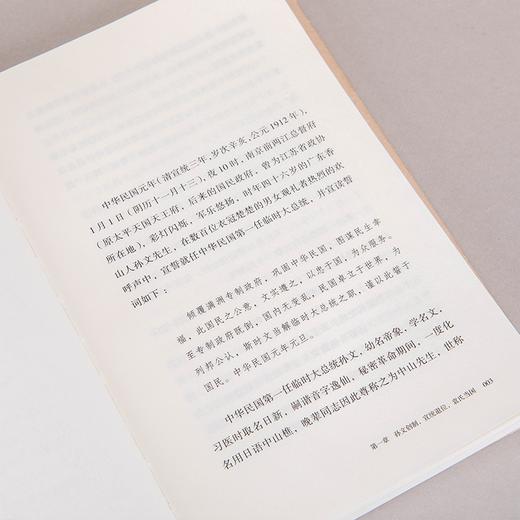 中华民国元年（清宣统三年，岁次辛亥，公元1912年），
1月1日（阴历十一月十三），夜10时，南京前两江总督府
（原太平天国天王府，后来的国民政府，曾为江苏省政协
所在地），彩灯闪烁，军乐悠扬，时年四十六岁的广东香
山人孙文先生，在数百位衣冠楚楚的男女观礼者热烈的欢
呼声中，宣誓就任中华民国第一任临时大总统，并宣读誓
词如下：
倾覆满洲专制政府，巩固中华民国，图谋民生幸
福，此国民之公意，文实遵之，以忠于国，为众服务。
至专制政府既倒，国内无变乱，民国卓立于世界，为
列邦公认，斯时文当解临时大总统之职，谨以此誓于
国民。中华民国元年元旦。
中华民国第一任临时大总统孙文，幼名帝象，学名文，
习医时取名日新，嗣谐音字逸仙，秘密革命期间，一度化
名用日语中山樵，晚辈同志因此尊称之为中山先生，世称
第一章 孙文创制，宣统退位，袁氏当国 003